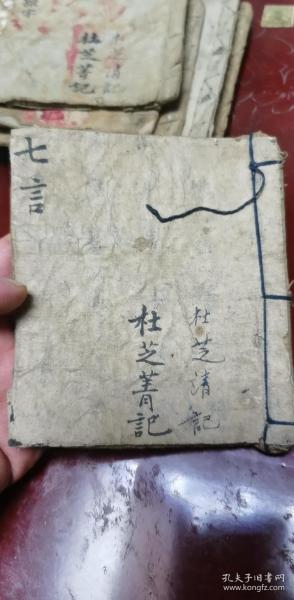 七言
杜芝清記
杜芝菁記
杜芝清記
杜芝菁記
孔夫子旧书网
www.kongfz.com